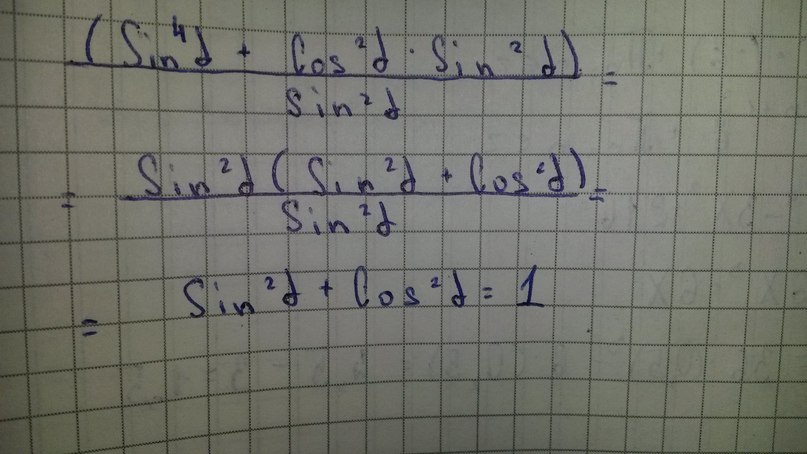 (Sin⁴α + Cos²α · Sin²α)
Sin²α =
= Sin²α (Sin²α + Cos²α) =
Sin²α
= Sin²α + Cos²α = 1